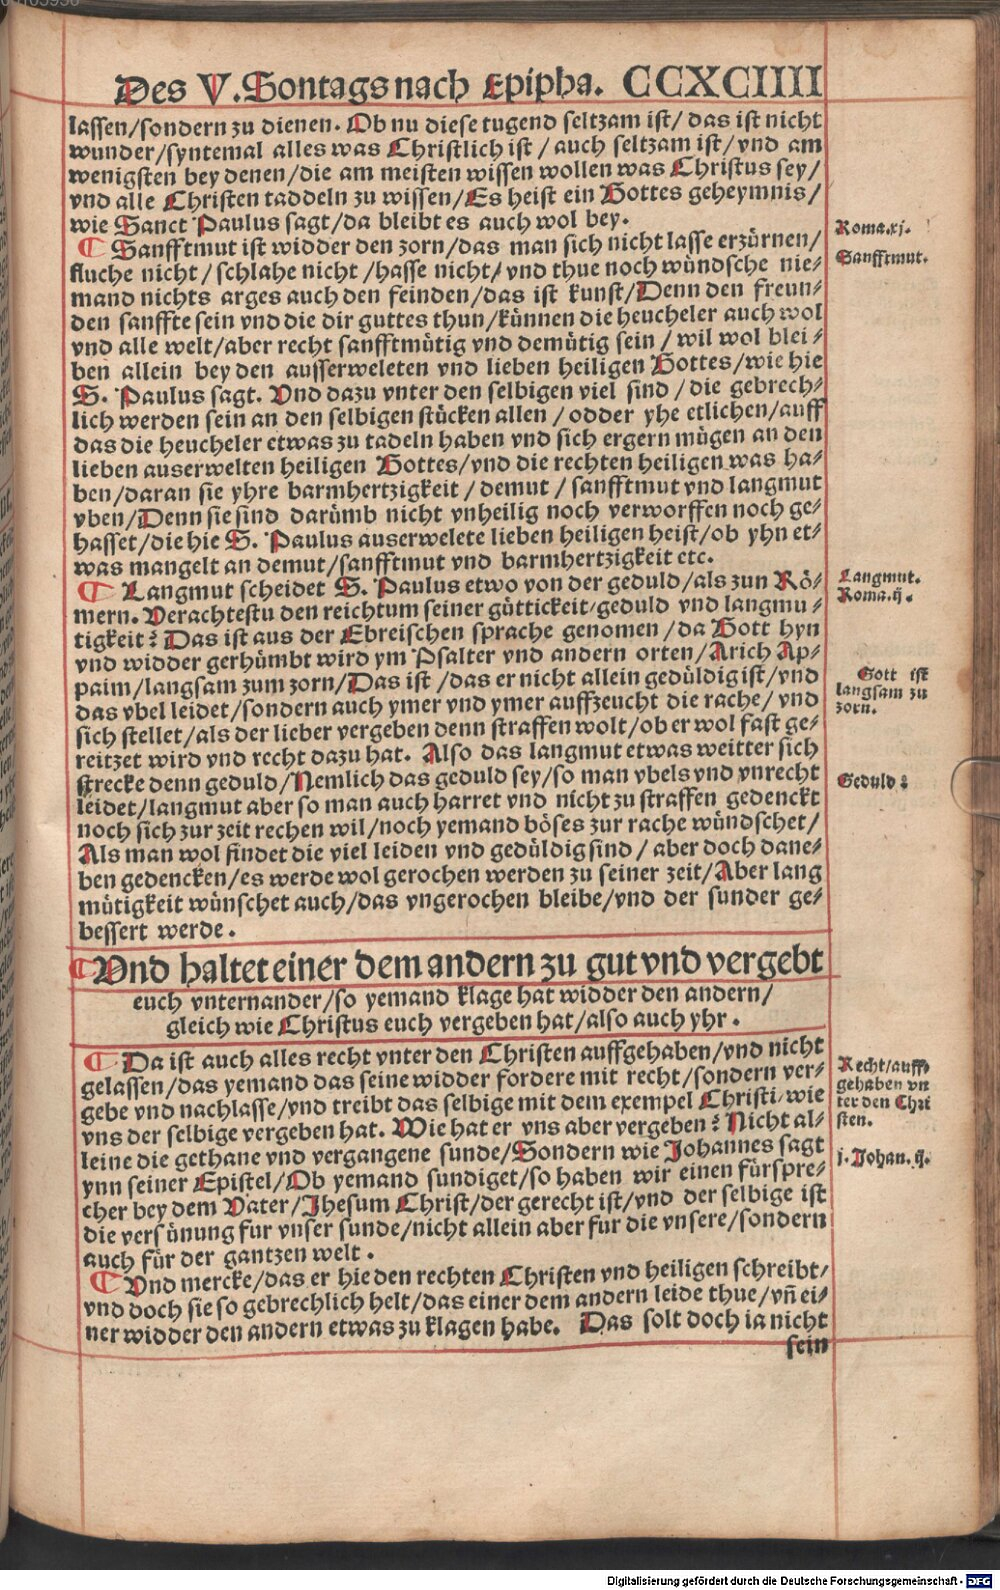 Des V. Sontags nach Epipha. CCXCIIII
lassen/sondern zu dienen. Ob nu diese tugend seltzam ist/ das ist nicht
wunder/syntemal alles was Christlich ist / auch seltzam ist/ vnd am
wenigsten bey denen/die am meisten wissen wollen was Christus sey/
vnd alle Christen taddeln zu wissen/Es heist ein Gottes geheymnis/
wie Sanct Paulus sagt/da bleibt es auch wol bey.
Roma.xj.
¶ Sanfftmut ist widder den zorn/das man sich nicht lasse erzürnen/
Sanfftmut.
fluche nicht / schlahe nicht /hasse nicht/ vnd thue noch wündsche nie⸗
mand nichts arges auch den feinden/das ist kunst/Denn den freun⸗
den sanffte sein vnd die dir guttes thun/künnen die heucheler auch wol
vnd alle welt/aber recht sanfftmütig vnd demütig sein / wil wol blei⸗
ben allein bey den ausserweleten vnd lieben heiligen Gottes/wie hie
S. Paulus sagt. Vnd dazu vnter den selbigen viel sind / die gebrech⸗
lich werden sein an den selbigen stücken allen / odder yhe etlichen/auff
das die heucheler etwas zu tadeln haben vnd sich ergern mügen an den
lieben auserwelten heiligen Gottes/vnd die rechten heiligen was ha⸗
ben/daran sie yhre barmhertzigkeit / demut / sanfftmut vnd langmut
vben/Denn sie sind darümb nicht vnheilig noch verworffen noch ge⸗
hasset/die hie S. Paulus auserwelete lieben heiligen heist/ob yhn et⸗
was mangelt an demut/sanfftmut vnd barmhertzigkeit etc.
¶ Langmut scheidet S. Paulus etwo von der geduld/als zun Rö⸗
Langmut.
mern. Verachtestu den reichtum seiner güttickeit/geduld vnd langmu⸗
Roma.ij.
tigkeit? Das ist aus der Ebreischen sprache genomen/da Gott hyn
vnd widder gerhümbt wird ym Psalter vnd andern orten/Arich Ap⸗
paim/langsam zum zorn/Das ist /das er nicht allein gedüldig ist/vnd
Gott ist
langsam zu
zorn.
das vbel leidet/sondern auch ymer vnd ymer auffzeucht die rache/ vnd
sich stellet/als der lieber vergeben denn straffen wolt/ob er wol fast ge⸗
reitzet wird vnd recht dazu hat. Also das langmut etwas weitter sich
strecke denn geduld/Nemlich das geduld sey/so man vbels vnd vnrecht
Geduld?
leidet/langmut aber so man auch harret vnd nicht zu straffen gedenckt
noch sich zur zeit rechen wil/noch yemand böses zur rache wündschet/
Als man wol findet die viel leiden vnd gedüldig sind / aber doch dane⸗
ben gedencken/es werde wol gerochen werden zu seiner zeit/Aber lang
mütigkeit wünschet auch/das vngerochen bleibe/vnd der sunder ge⸗
bessert werde.
¶Vnd haltet einer dem andern zu gut vnd vergebt
euch vnternander/so yemand klage hat widder den andern/
gleich wie Christus euch vergeben hat/also auch yhr.
¶ Da ist auch alles recht vnter den Christen auffgehaben/vnd nicht
Recht/auff⸗
gehaben vn
ter den Chri
sten.
gelassen/das yemand das seine widder fordere mit recht/sondern ver⸗
gebe vnd nachlasse/vnd treibt das selbige mit dem exempel Christi/wie
vns der selbige vergeben hat. Wie hat er vns aber vergeben? Nicht al⸗
leine die gethane vnd vergangene sunde/Sondern wie Johannes sagt
j.Johan.ij.
ynn seiner Epistel/Ob yemand sundiget/so haben wir einen fürspre⸗
cher bey dem Vater/Jhesum Christ/der gerecht ist/vnd der selbige ist
die versünung fur vnser sunde/nicht allein aber fur die vnsere/sondern
auch für der gantzen welt.
¶ Vnd mercke/das er hie den rechten Christen vnd heiligen schreibt/
vnd doch sie so gebrechlich helt/das einer dem andern leide thue/vñ ei⸗
ner widder den andern etwas zu klagen habe. Das solt doch ia nicht
sein
Digitalisierung gefördert durch die Deutsche Forschungsgemeinschaft - DFG